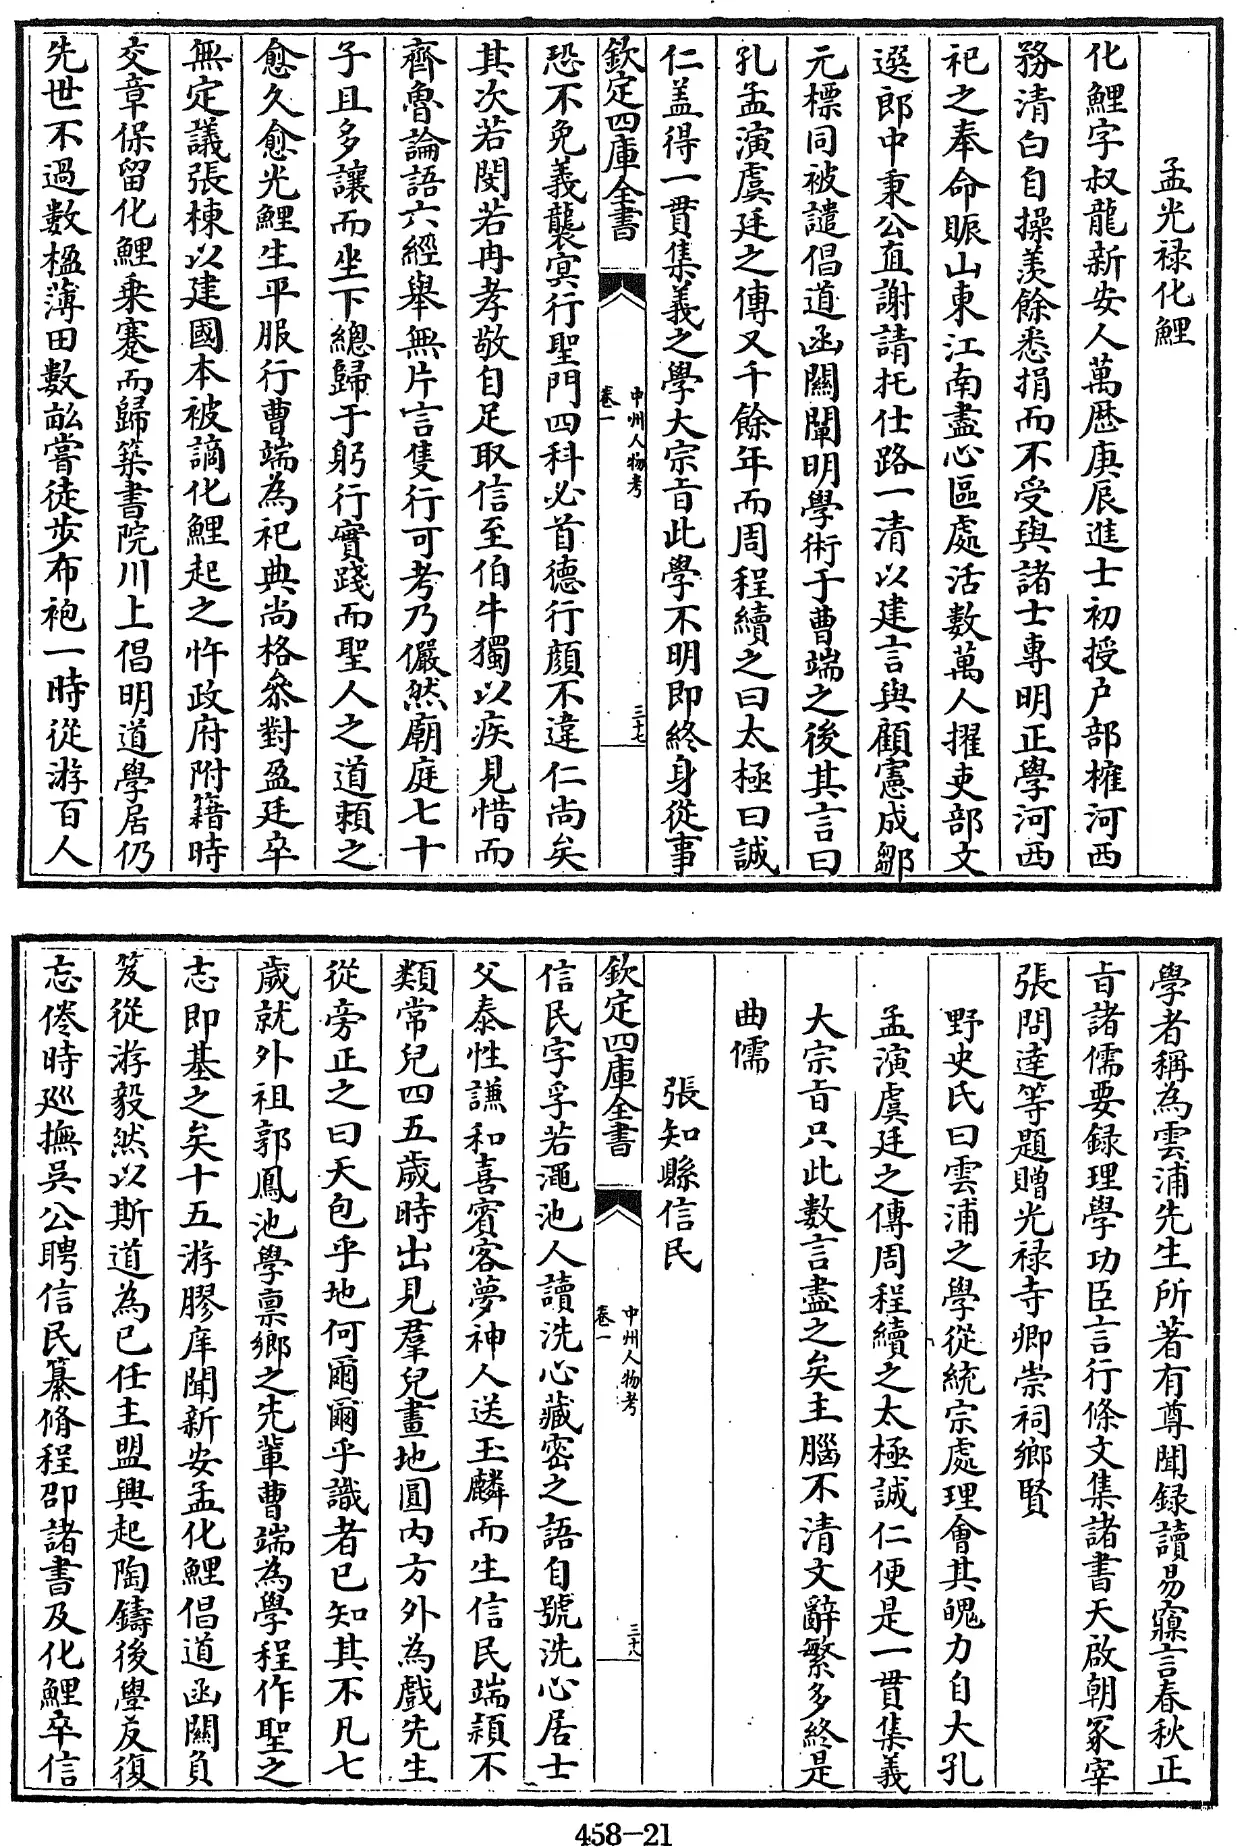 孟光禄化鯉
化鯉字叔龍新安人萬歴庚辰進士初授户部榷河西
務清白自操羨餘悉捐而不受與諸士專明正學河西
祀之奉命賑山東江南盡心區處活數萬人擢吏部文
選郎中秉公直謝請托仕路一清以建言與顧憲成鄒
元標同被譴倡道函關闡明學術于曹端之後其言曰
孔孟演虞廷之傳又千餘年而周程續之曰太極曰誠
仁盖得一貫集義之學大宗㫖此學不明即終身從事
欽定四庫全書
中州人物考
卷一
三十七
恐不免義襲㝠行聖門四科必首德行顔不違仁尚矣
其次若閔若冉孝敬自足取信至伯牛獨以疾見惜而
齊魯論語六經舉無片言隻行可考乃儼然廟庭七十
子且多讓而坐下總歸于躬行實踐而聖人之道賴之
愈久愈光鯉生平服行曹端為祀典尚格叅對盈廷卒
無定議張棟以建國本被謫化鯉起之忤政府附籍時
交章保留化鯉乗蹇而歸築書院川上倡明道學居仍
先世不過數楹薄田數畝嘗徒步布袍一時從游百人
學者稱為雲浦先生所著有尊聞録讀易寱言春秋正
㫖諸儒要録理學功臣言行條文集諸書天啟朝冢宰
張問達等題贈光禄寺卿崇祠鄉賢
野史氏曰雲浦之學從統宗處理會其魄力自大孔
孟演虞廷之傳周程續之太極誠仁便是一貫集義
大宗㫖只此數言盡之矣主腦不清文辭繁多終是
曲儒
張知縣信民
欽定四庫全書
中州人物考
卷一
三十八
信民字孚若澠池人讀洗心藏密之語自號洗心居士
父泰性謙和喜賓客夢神人送玉麟而生信民端頴不
類常兒四五歲時出見羣兒畫地圓内方外為戲先生
從旁正之曰天包乎地何爾爾乎識者已知其不凡七
歲就外祖郭鳳池學禀鄉之先輩曹端為學程作聖之
志即基之矣十五游膠庠聞新安孟化鯉倡道函關負
笈從游毅然以斯道為已任主盟興起陶鑄後學反復
忘倦時廵撫吳公聘信民纂脩程邵諸書及化鯉卒信
458-21